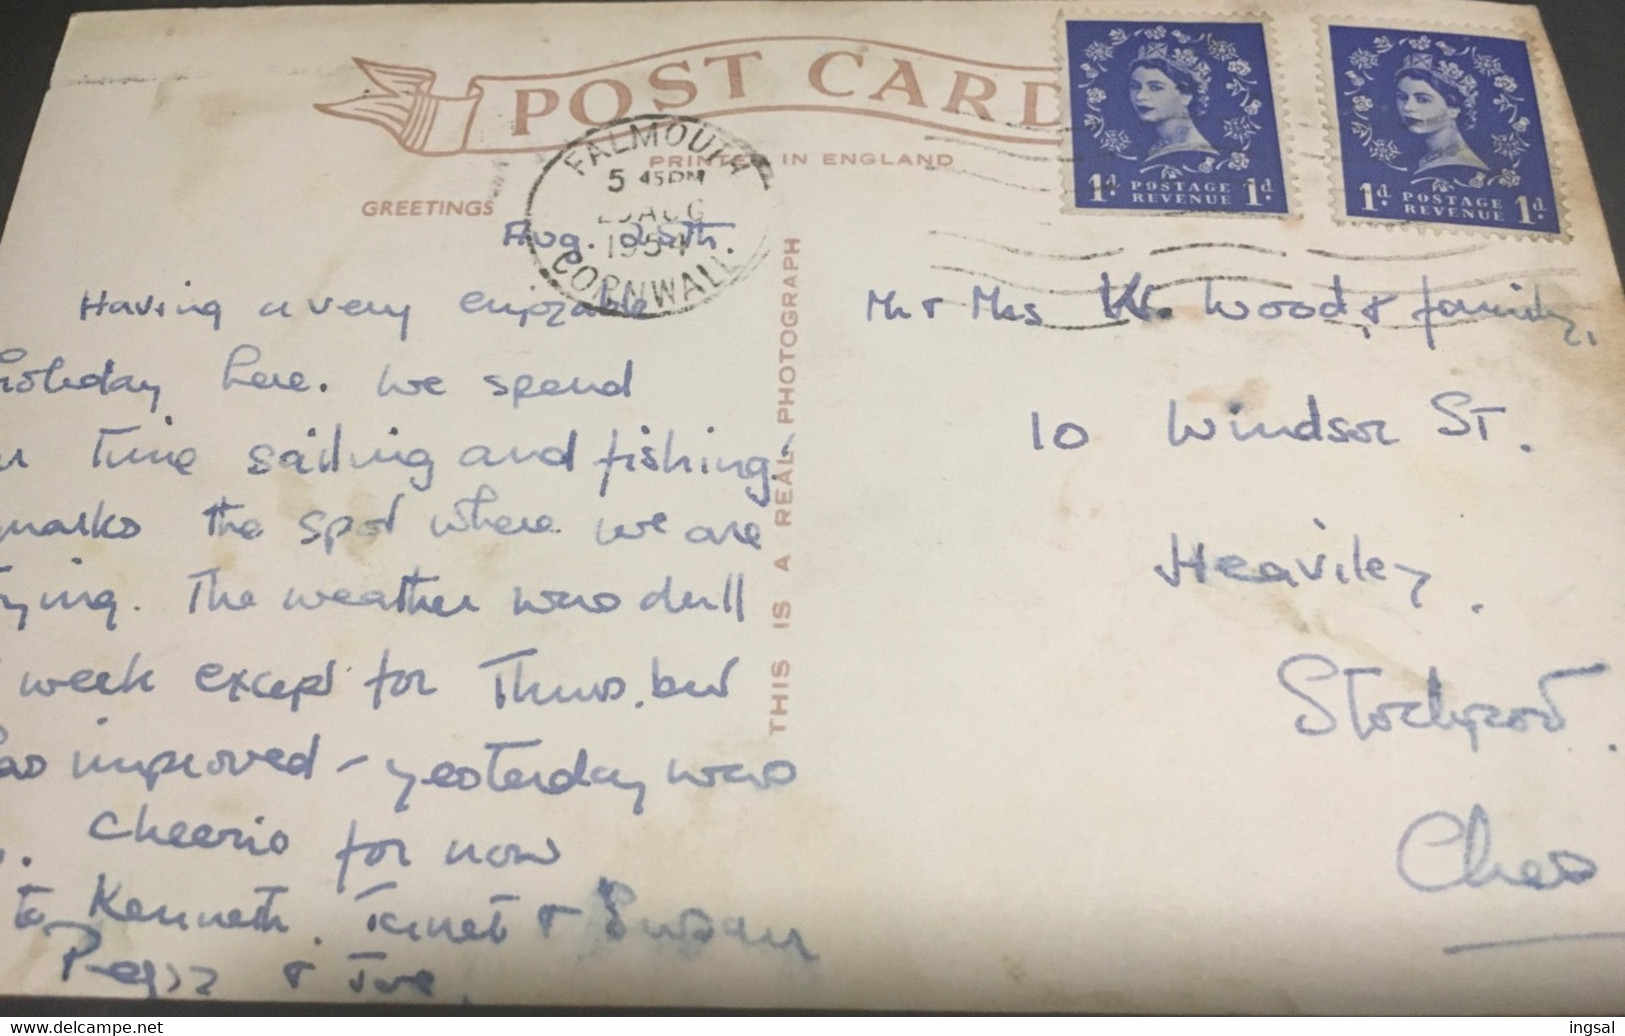 POST CARD
PRINTED IN ENGLAND
GREETINGS
FALMOUTH
5 45PM
AUG
1954
CORNWALL
1d. POSTAGE REVENUE 1d.
1d. POSTAGE REVENUE 1d.
THIS IS A REAL PHOTOGRAPH
Aug. 25th.
Having a very enjoyable
holiday here. We spend
Time sailing and fishing.
marks the spot where we are
The weather was dull
week except for Thurs. but
has improved - yesterday was
Cheerio for now
to Kenneth. Janet & Susan
Peggy & Joe.
Mr & Mrs W. Wood & family,
10 Windsor St.
Heaviley.
Stockport.
Ches
ingsal